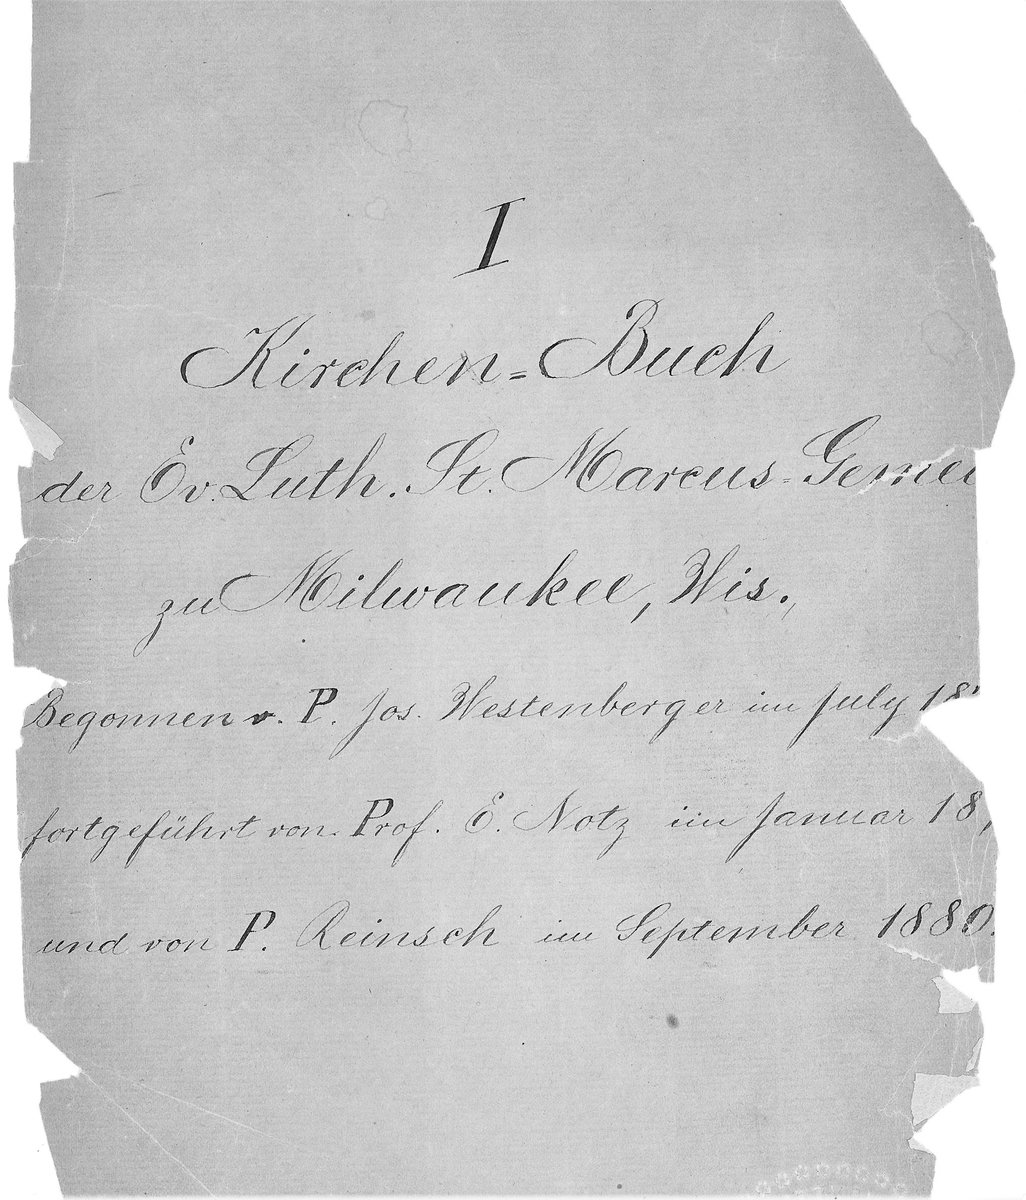 I
Kirchen=Buch
der Ev. Luth. St. Marcus-Gemei
zu Milwaukee, Wis.,
Begonnen v. P. Jos. Westenberger im July 18
fortgeführt von Prof. E. Notz im Januar 18
und von P. Reinsch im September 1880.